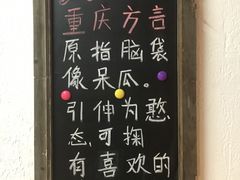 重庆方言
原指脑袋
像呆瓜。
引伸为憨
态可掬
有喜欢的